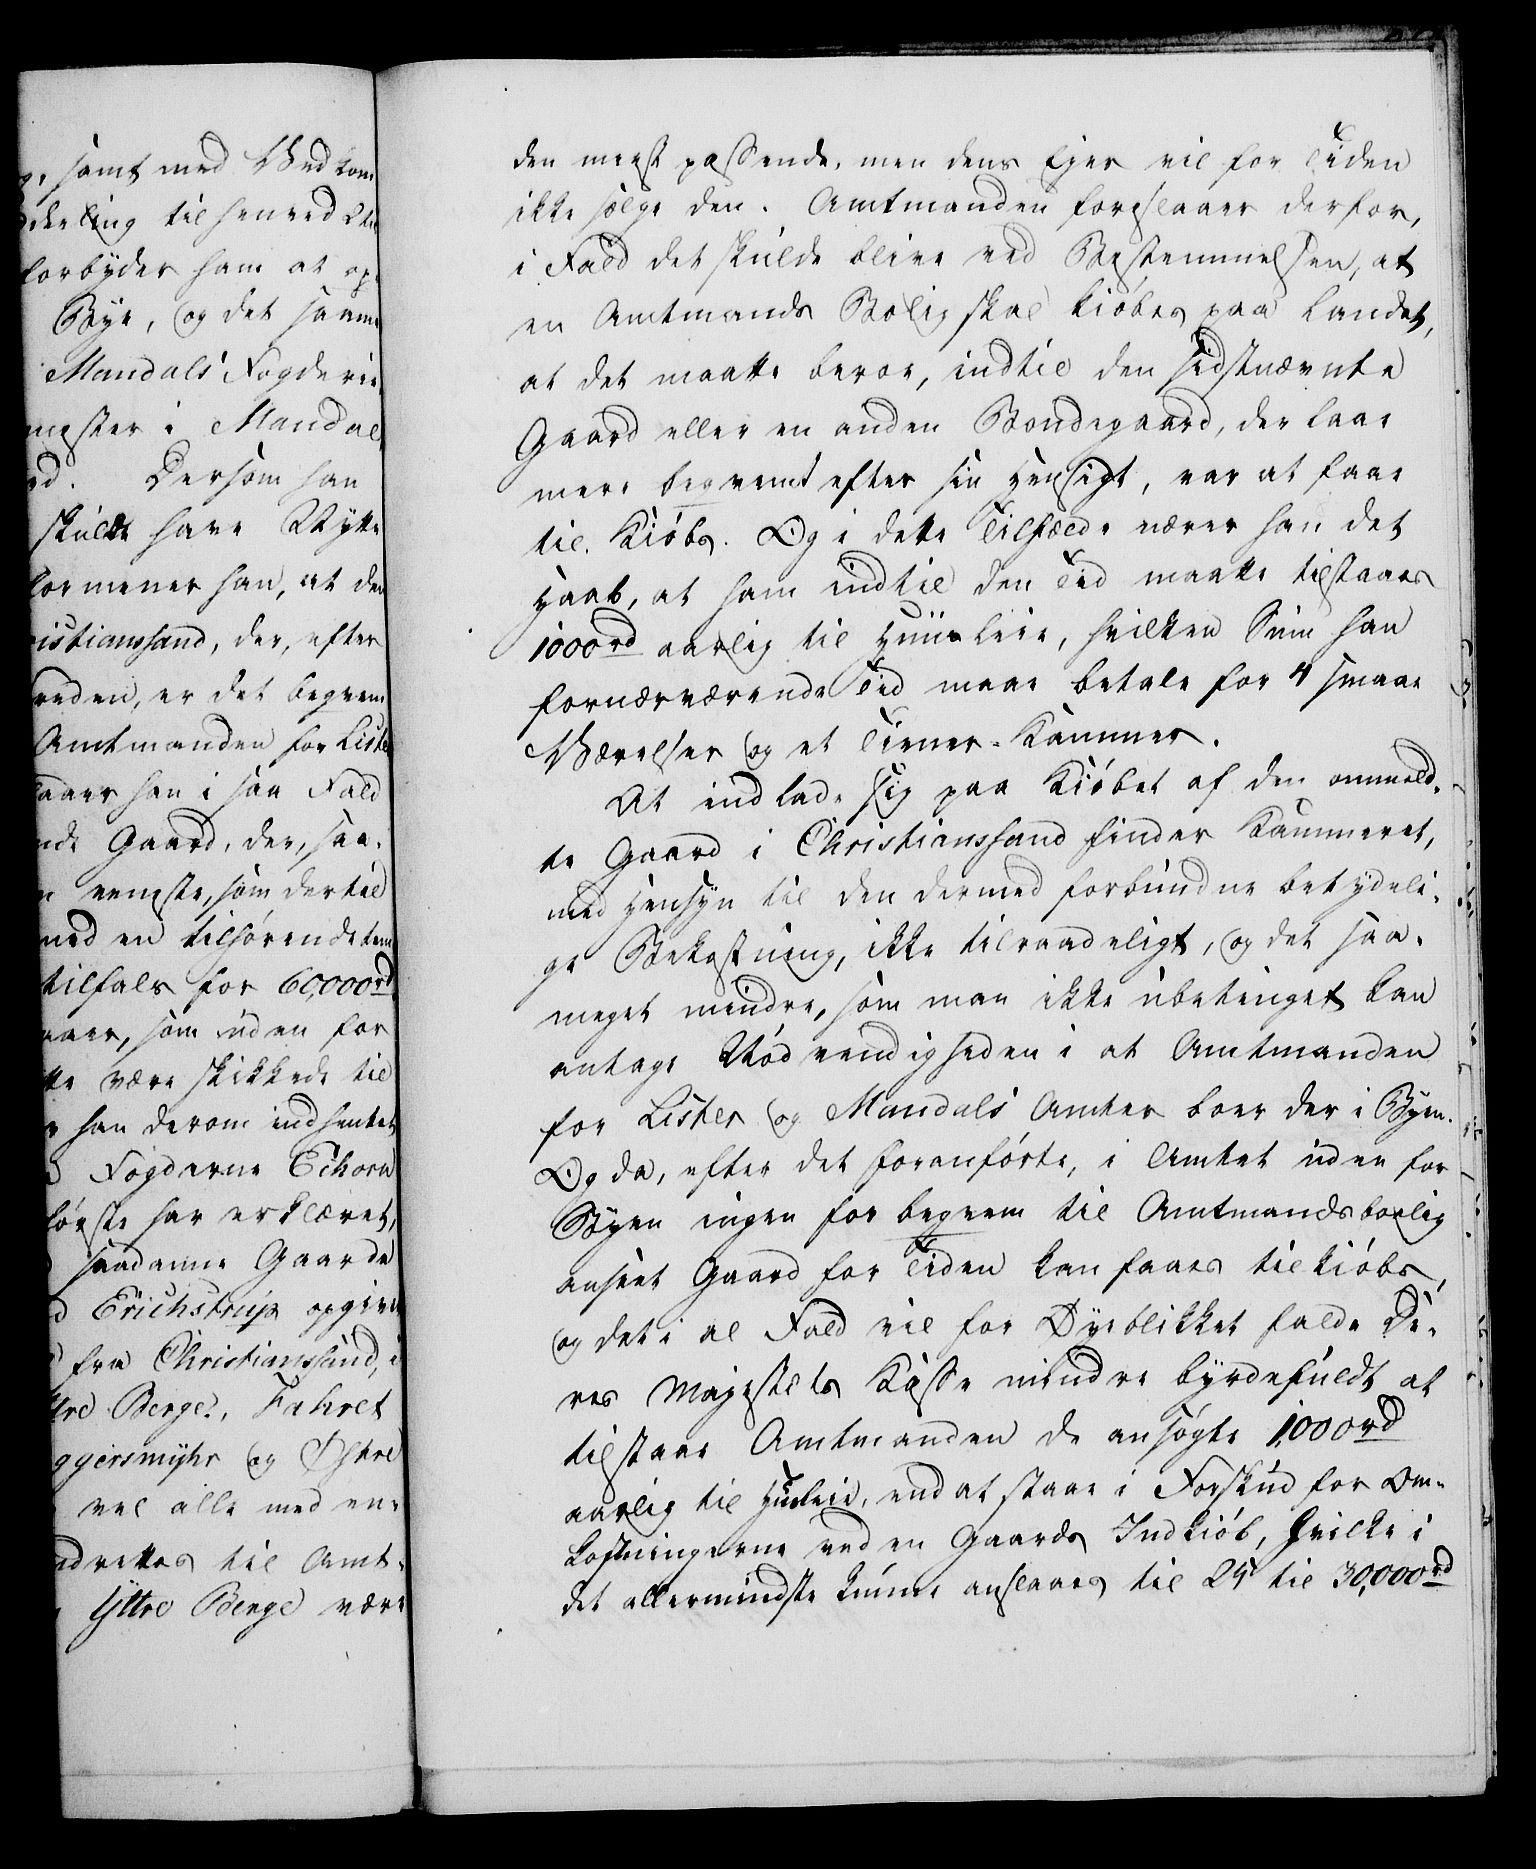 samt med Vedkom
deeling til henved 2de
forbyder ham at op
Bye, og det samme
Mandals Fogderie
mester i Mandal,
Dersom han
skulde have Nytte
formener han, at den
istianssand, der, efter
reden, er det beqvem
Amtmanden for Liste
laaer han i saa Fald
nde Gaard, der, saa
eeneste, som dertil
med en tilhørende tom
tilfals for 60,000rd
aaer, som uden for
tte være skikkede til
r han derom indhentet
Fogderne Eihorn
første har erklæret,
saadanne Gaarde
d Erichstrup opgiven
fra Christianssand, i
ttre Berge, Fahret
ggersmyhr og Østre
vel alle med en
ndrettes til Amt-
Yttre Berge være
den meest passende, men dens Ejer vil for Tiden
ikke sælge den. Amtmanden foreslaaer derfor,
i Fald det skulde blive ved Bestemmelsen, at
en Amtmands Bolig skal kiøbes paa Landet,
at det maatte beroe, indtil den sidstnævnte
Gaard eller en anden Bondegaard, der laae
mere beqvemt efter sin Hensigt, var at faae
til Kiøbs. Og i dette Tilfælde nærer han det
Haab, at ham indtil den Tid maatte tilstaaes
1000rd aarlig til Huusleie, hvilken Sum han
fornærværende Tid maae betale for 4 smaae
Værelser og et Tiener-Kammer.
At indlade sig paa Kiøbet af den ommeld-
te Gaard i Christianssand finder Kammeret,
med Hensyn til den dermed forbundne betydeli-
ge Bekostning, ikke tilraadeligt, og det saa-
meget mindre, som man ikke ubetinget kan
antage Nødvendigheden i at Amtmanden
for Lister og Mandals Amter boer der i Byen.
Og da, efter det foranførte, i Amtet uden for
Byen ingen for beqvem til Amtmandsboelig
anseet Gaard for Tiden kan faaes til kiøbs,
og det i al Fald vil for Øyeblikket falde De-
res Majestets Kasse mindre byrdefuldt at
tilstaae Amtmanden de ansøgte 1,000rd
aarlig til Husleie, end at staae i Forskud for Om-
kostningerne ved en Gaards Indkiøb, hvilke i
det allermindste kunne anslaaes til 25 til 30,000rd